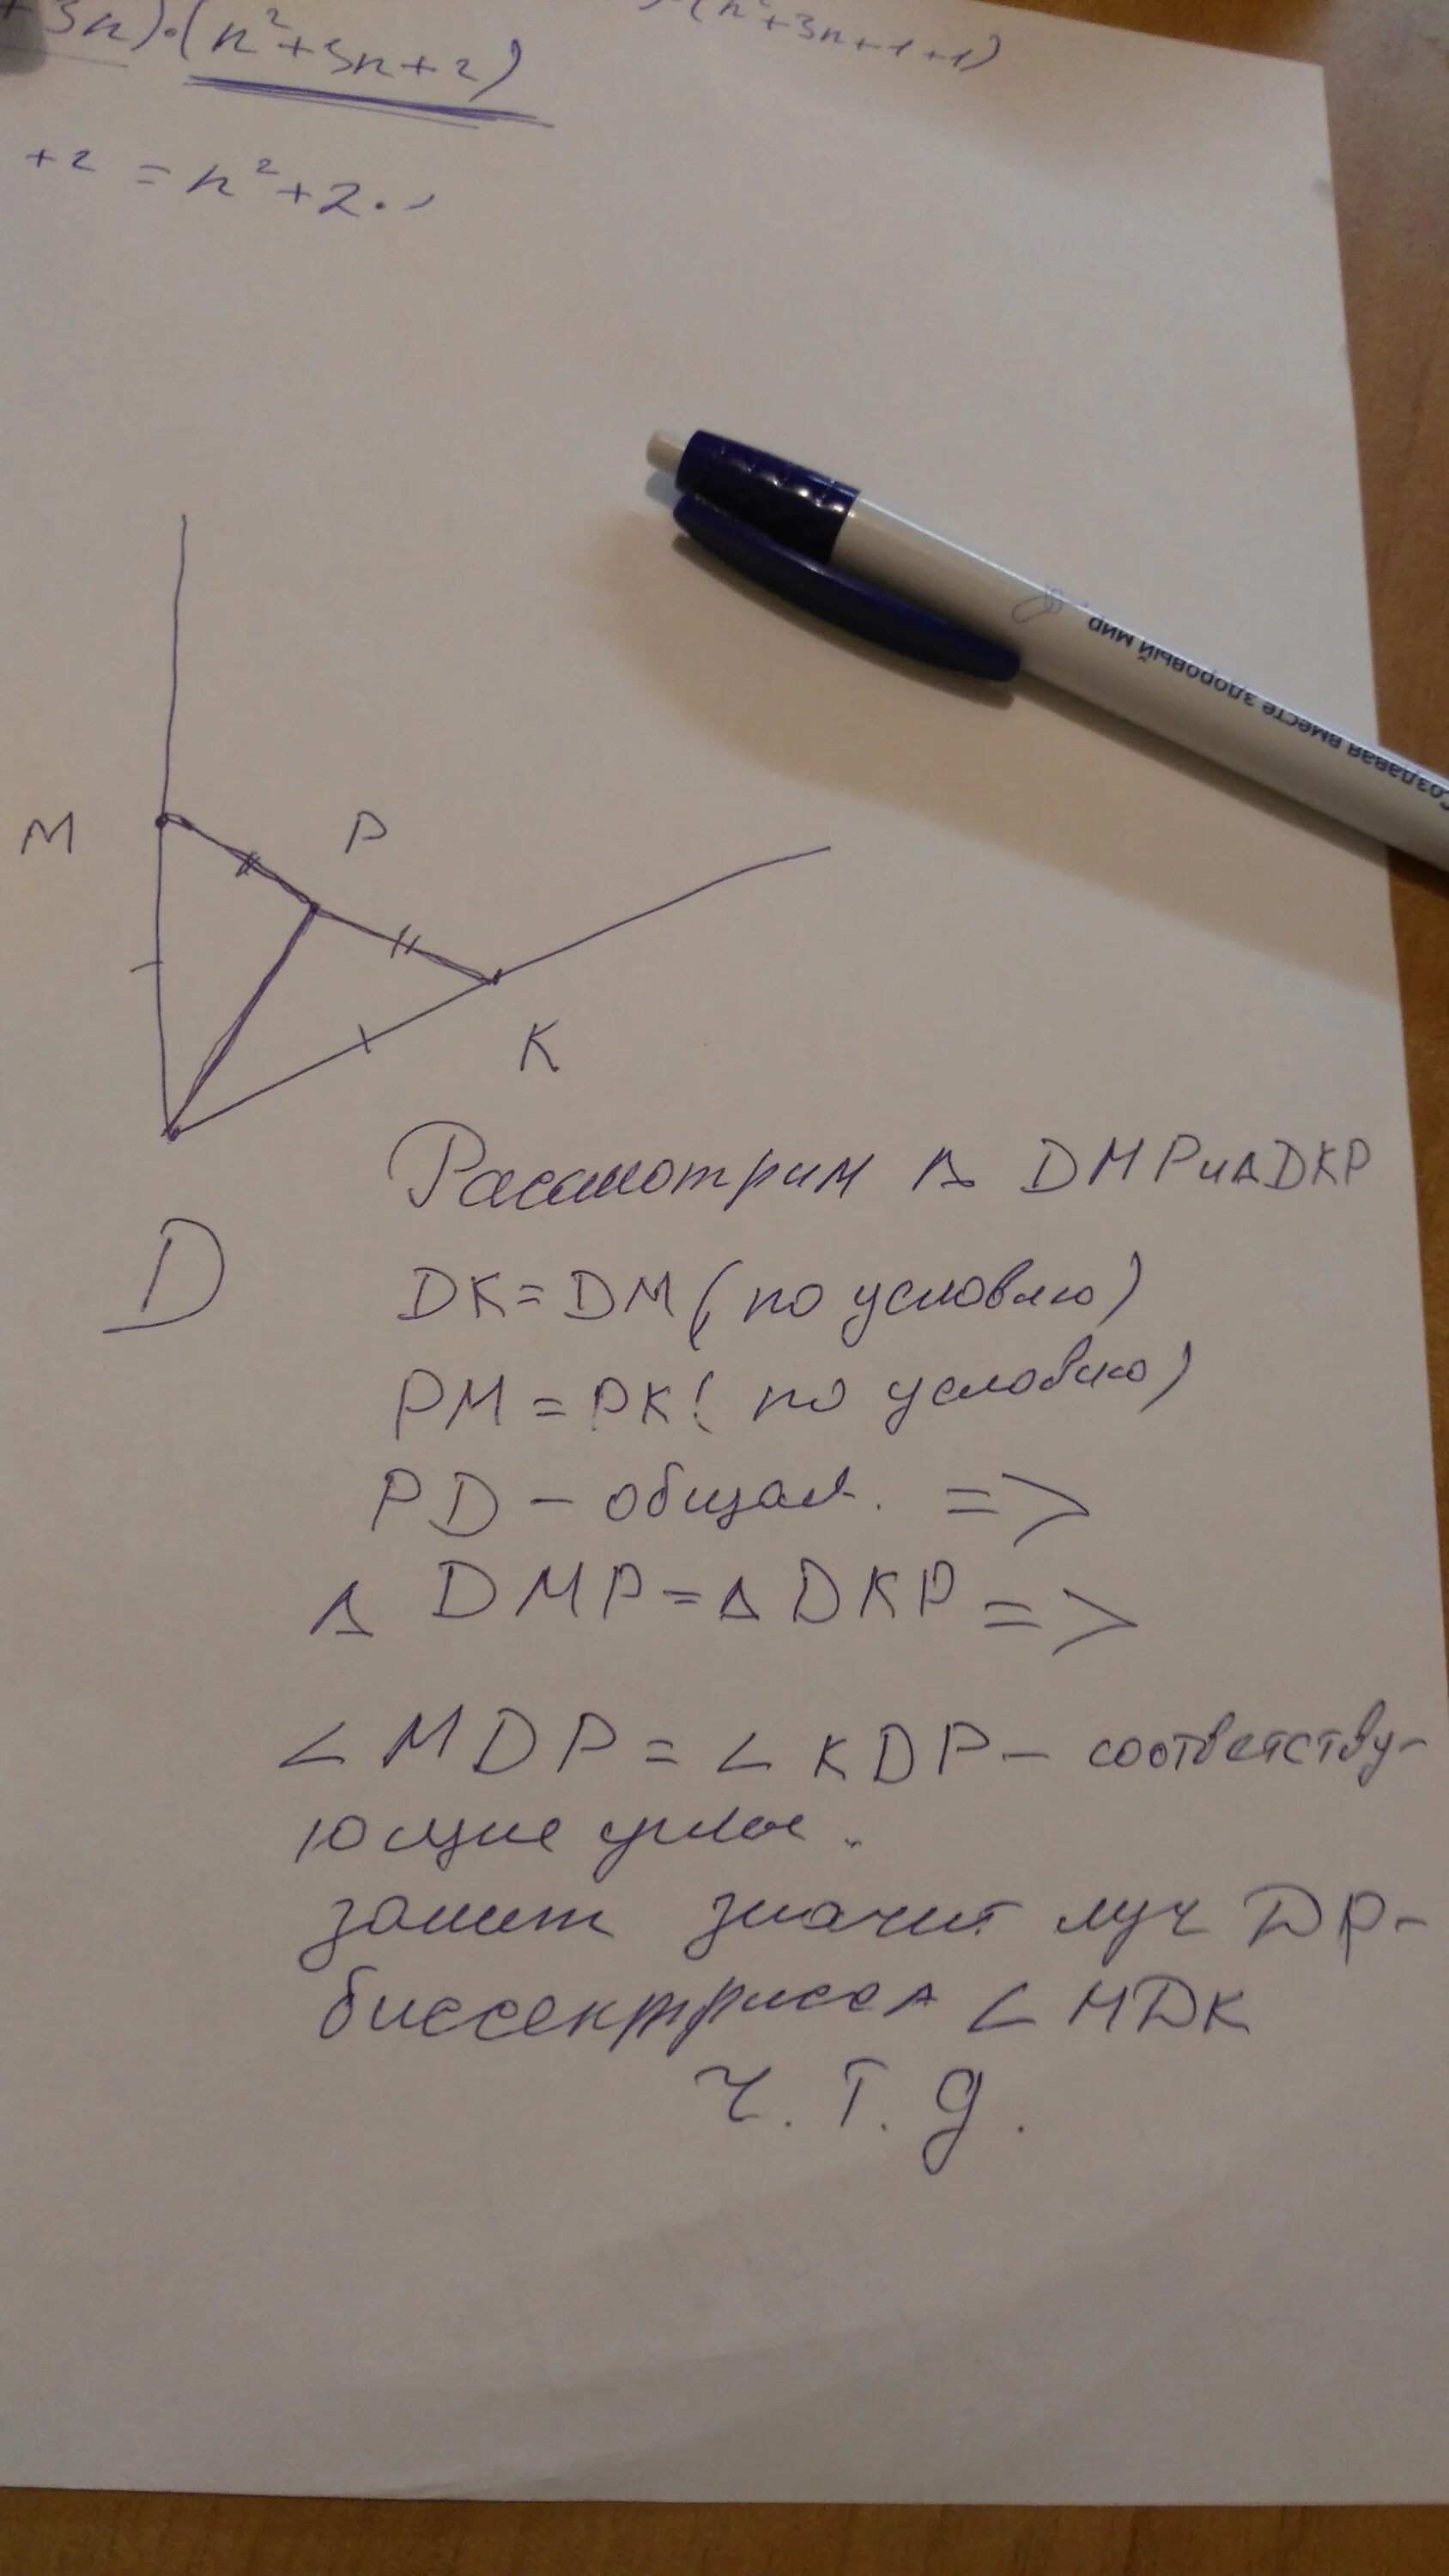 +3n)·(n²+3n+2)
(n²+3n+1+1)
+2 = n²+2·
Создавая вместе здоровый мир
M
P
K
D
Рассмотрим Δ DMP и Δ DKP
DK = DM (по условию)
PM = PK (по условию)
PD – общая. =>
Δ DMP = Δ DKP =>
∠ MDP = ∠ KDP – соответству-
ющие углы.
значит луч DP-
биссектриса ∠ MDK
Ч. Т. Д.